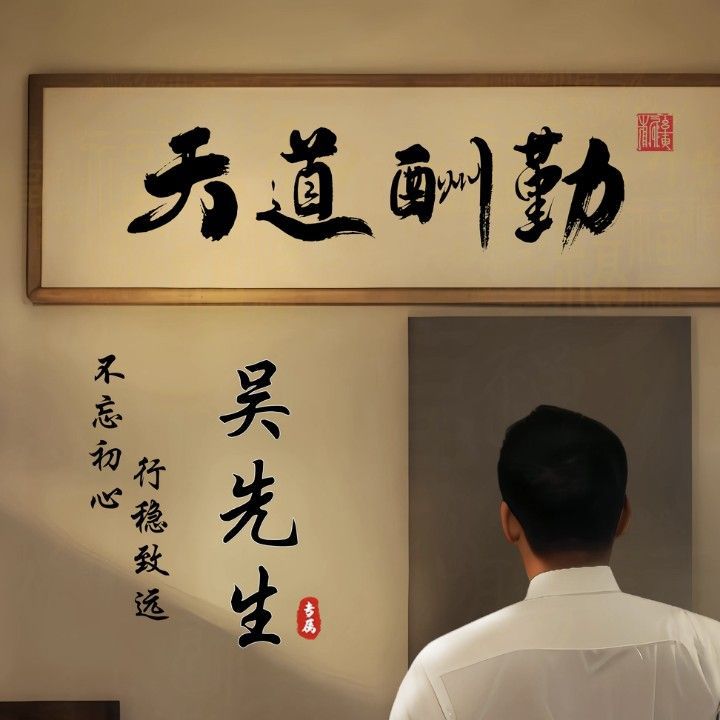 天道酬勤
不忘初心
行稳致远
吴先生
专属